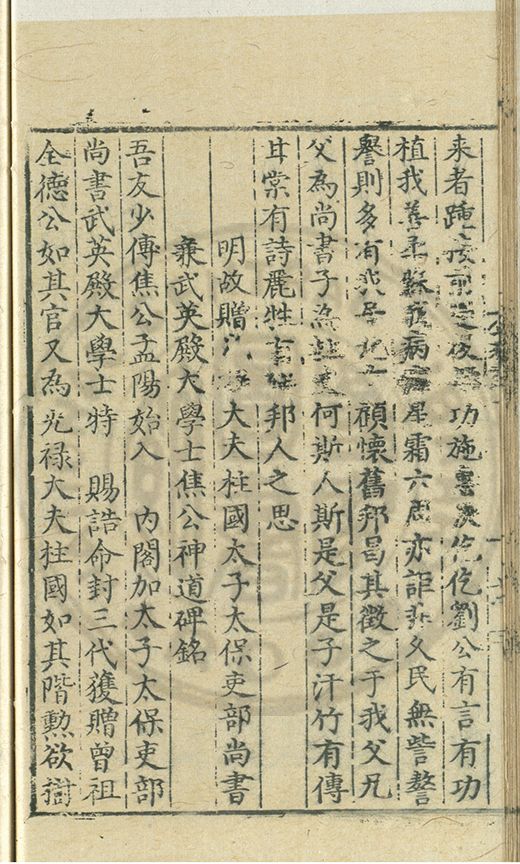 来者踵 功施 仡仡劉公有言有功
植我善柔 病 星霜六周亦詎 久民無訾謷
譽則多有 顧懷舊邦曷其徵之于我父兄
父為尚書子 何斯人斯是父是子汗竹有傳
甘棠有詩麗牲 邦人之思
明故贈 大夫柱國太子太保吏部尚書
兼武英殿大學士焦公神道碑銘
吾友少傅焦公孟陽始入 內閣加太子太保吏部
尚書武英殿大學士特 賜誥命封三代獲贈曾祖
全德公如其官又為光禄大夫柱國如其階勲欲樹